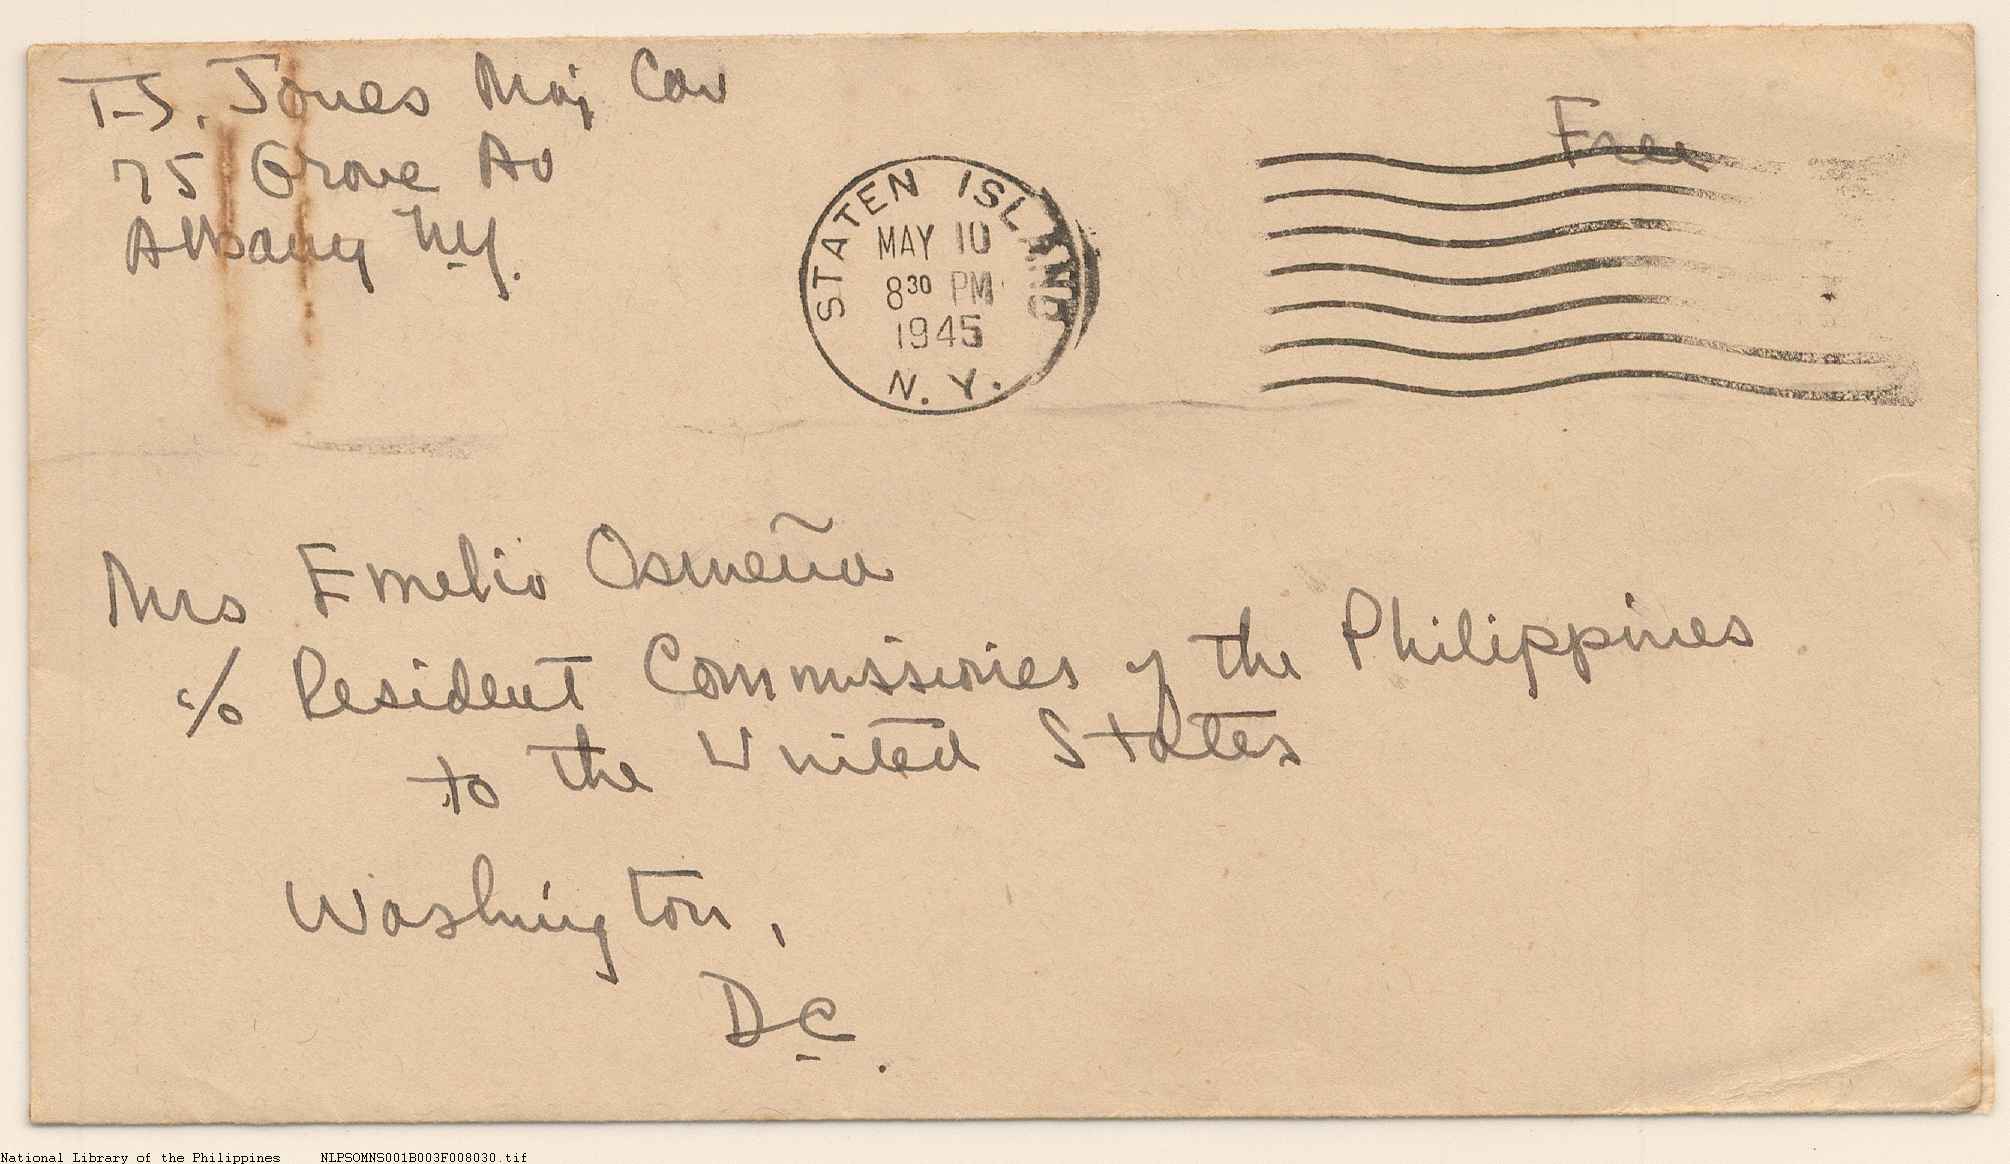 T.S. Jones Maj Cav
75 Grove Av
Albany N.Y.
Free
STATEN ISLAND
MAY 10
8 30 PM
1945
N. Y.
Mrs Emelio Osmeña
c/o Resident Commissioner of the Philippines
to the United States
Washington,
D.C.
National Library of the Philippines NLPSOMNS001B003F008030.tif